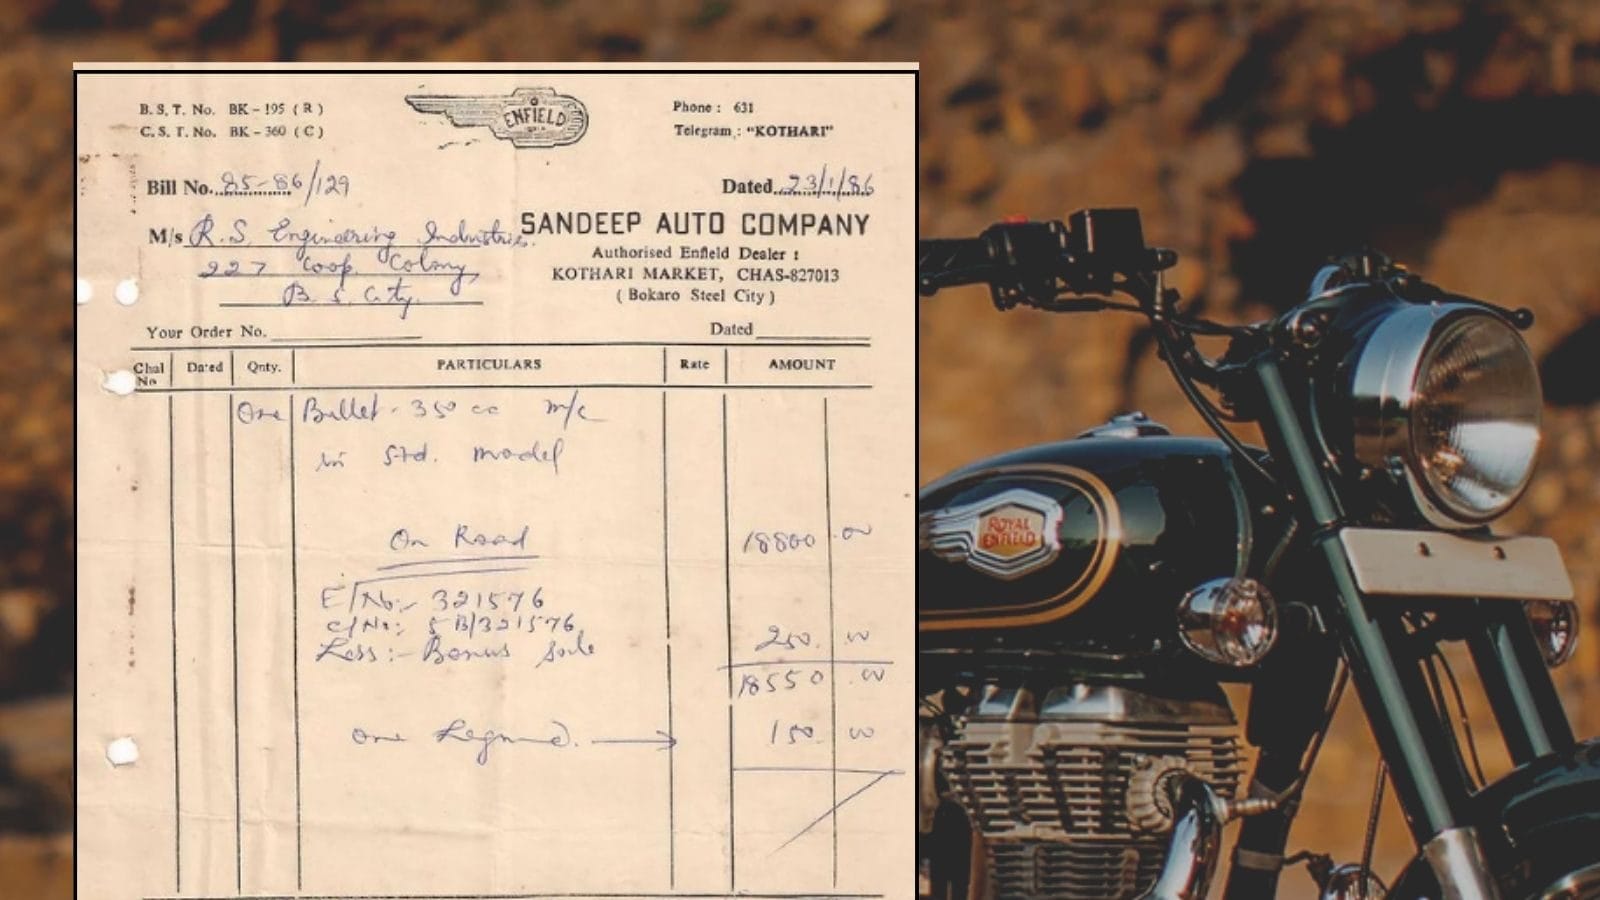 B.S.T. No. BK-195 (R)
C.S.T. No. BK-360 (C)
ENFIELD
Phone : 631
Telegram : "KOTHARI"
Bill No. 85-86/129
Dated 23/1/86
M/s R.S. Engineering Industries.
227 Coop. Colony,
B. S. City.
SANDEEP AUTO COMPANY
Authorised Enfield Dealer :
KOTHARI MARKET, CHAS-827013
( Bokaro Steel City )
Your Order No.
Dated
Chal No Dated Qnty. PARTICULARS Rate AMOUNT
One Bullet - 350 cc m/c
in Std. model
On Road 18800.00
E/No:- 321576
C/No:- 5B/321576
Less:- Bonus Sale 250.00
18550.00
one 150.00
ROYAL
ENFIELD